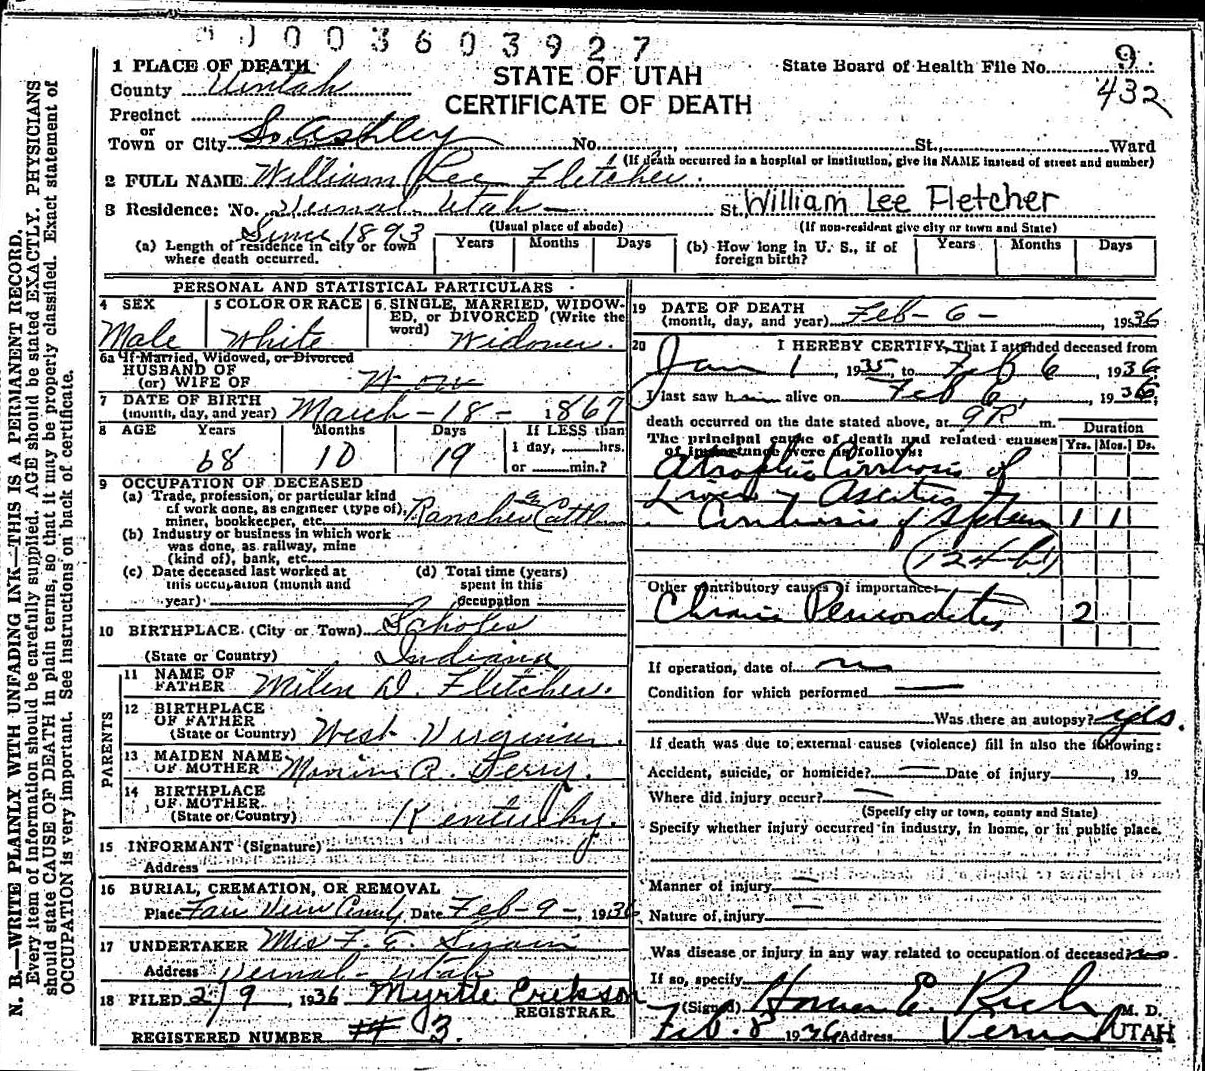 0003603927
1 PLACE OF DEATH
STATE OF UTAH
CERTIFICATE OF DEATH
State Board of Health File No. 9
432
County Uintah
Precinct
or
Town or City So Ashley No. St., Ward
(If death occurred in a hospital or institution, give its NAME instead of street and number)
2 FULL NAME William Lee Fletcher.
3 Residence: No. Vernal Utah St. William Lee Fletcher
(Usual place of abode) (If non-resident give city or town and State)
Since 1893
(a) Length of residence in city or town where death occurred. Years Months Days (b) How long in U. S., if of foreign birth? Years Months Days
PERSONAL AND STATISTICAL PARTICULARS
4 SEX Male
5 COLOR OR RACE White
6. SINGLE, MARRIED, WIDOWED, or DIVORCED (Write the word) Widower.
6a If Married, Widowed, or Divorced
HUSBAND OF
(or) WIFE OF
7 DATE OF BIRTH
(month, day, and year) March - 18 - 1867
8 AGE Years Months Days If LESS than
1 day, hrs.
or min.?
68 10 19
9 OCCUPATION OF DECEASED
(a) Trade, profession, or particular kind of work done, as engineer (type of), miner, bookkeeper, etc. Rancher & Cattleman
(b) Industry or business in which work was done, as railway, mine (kind of), bank, etc.
(c) Date deceased last worked at this occupation (month and year)
(d) Total time (years) spent in this occupation
10 BIRTHPLACE (City or Town)
(State or Country) Indiana
PARENTS
11 NAME OF FATHER D. Fletcher.
12 BIRTHPLACE OF FATHER
(State or Country) West Virginia
13 MAIDEN NAME OF MOTHER
14 BIRTHPLACE OF MOTHER
(State or Country) Kentucky.
15 INFORMANT (Signature)
Address
16 BURIAL, CREMATION, OR REMOVAL
Place Date Feb - 9 -, 1936
17 UNDERTAKER
Address Vernal - Utah
18 FILED 2/9, 1936 Myrtle Erikson
REGISTRAR
REGISTERED NUMBER 3.
19 DATE OF DEATH
(month, day, and year) Feb - 6 -, 1936
20 I HEREBY CERTIFY, That I attended deceased from
Jan 1, 1935, to Feb 6, 1936
I last saw him alive on Feb 6, 1936;
death occurred on the date stated above, at 9 P. m.
The principal cause of death and related causes of importance were as follows:
Duration
Yrs. Mos. Ds.
Atrophic Cirrhosis of
Liver Ascites
Cirrhosis of 1 1
(124-b)
Other contributory causes of importance:
Chronic 2
If operation, date of
Condition for which performed
Was there an autopsy? yes.
If death was due to external causes (violence) fill in also the following:
Accident, suicide, or homicide? Date of injury, 19
Where did injury occur?
(Specify city or town, county and State)
Specify whether injury occurred in industry, in home, or in public place.
Manner of injury
Nature of injury
Was disease or injury in any way related to occupation of deceased? no.
If so, specify
(Signed) Homer E. Rich M. D.
Feb. 8 1936 Address Vernal UTAH
N. B.—WRITE PLAINLY WITH UNFADING INK—THIS IS A PERMANENT RECORD.
Every item of information should be carefully supplied. AGE should be stated EXACTLY. PHYSICIANS
should state CAUSE OF DEATH in plain terms, so that it may be properly classified. Exact statement of
OCCUPATION is very important. See instructions on back of certificate.